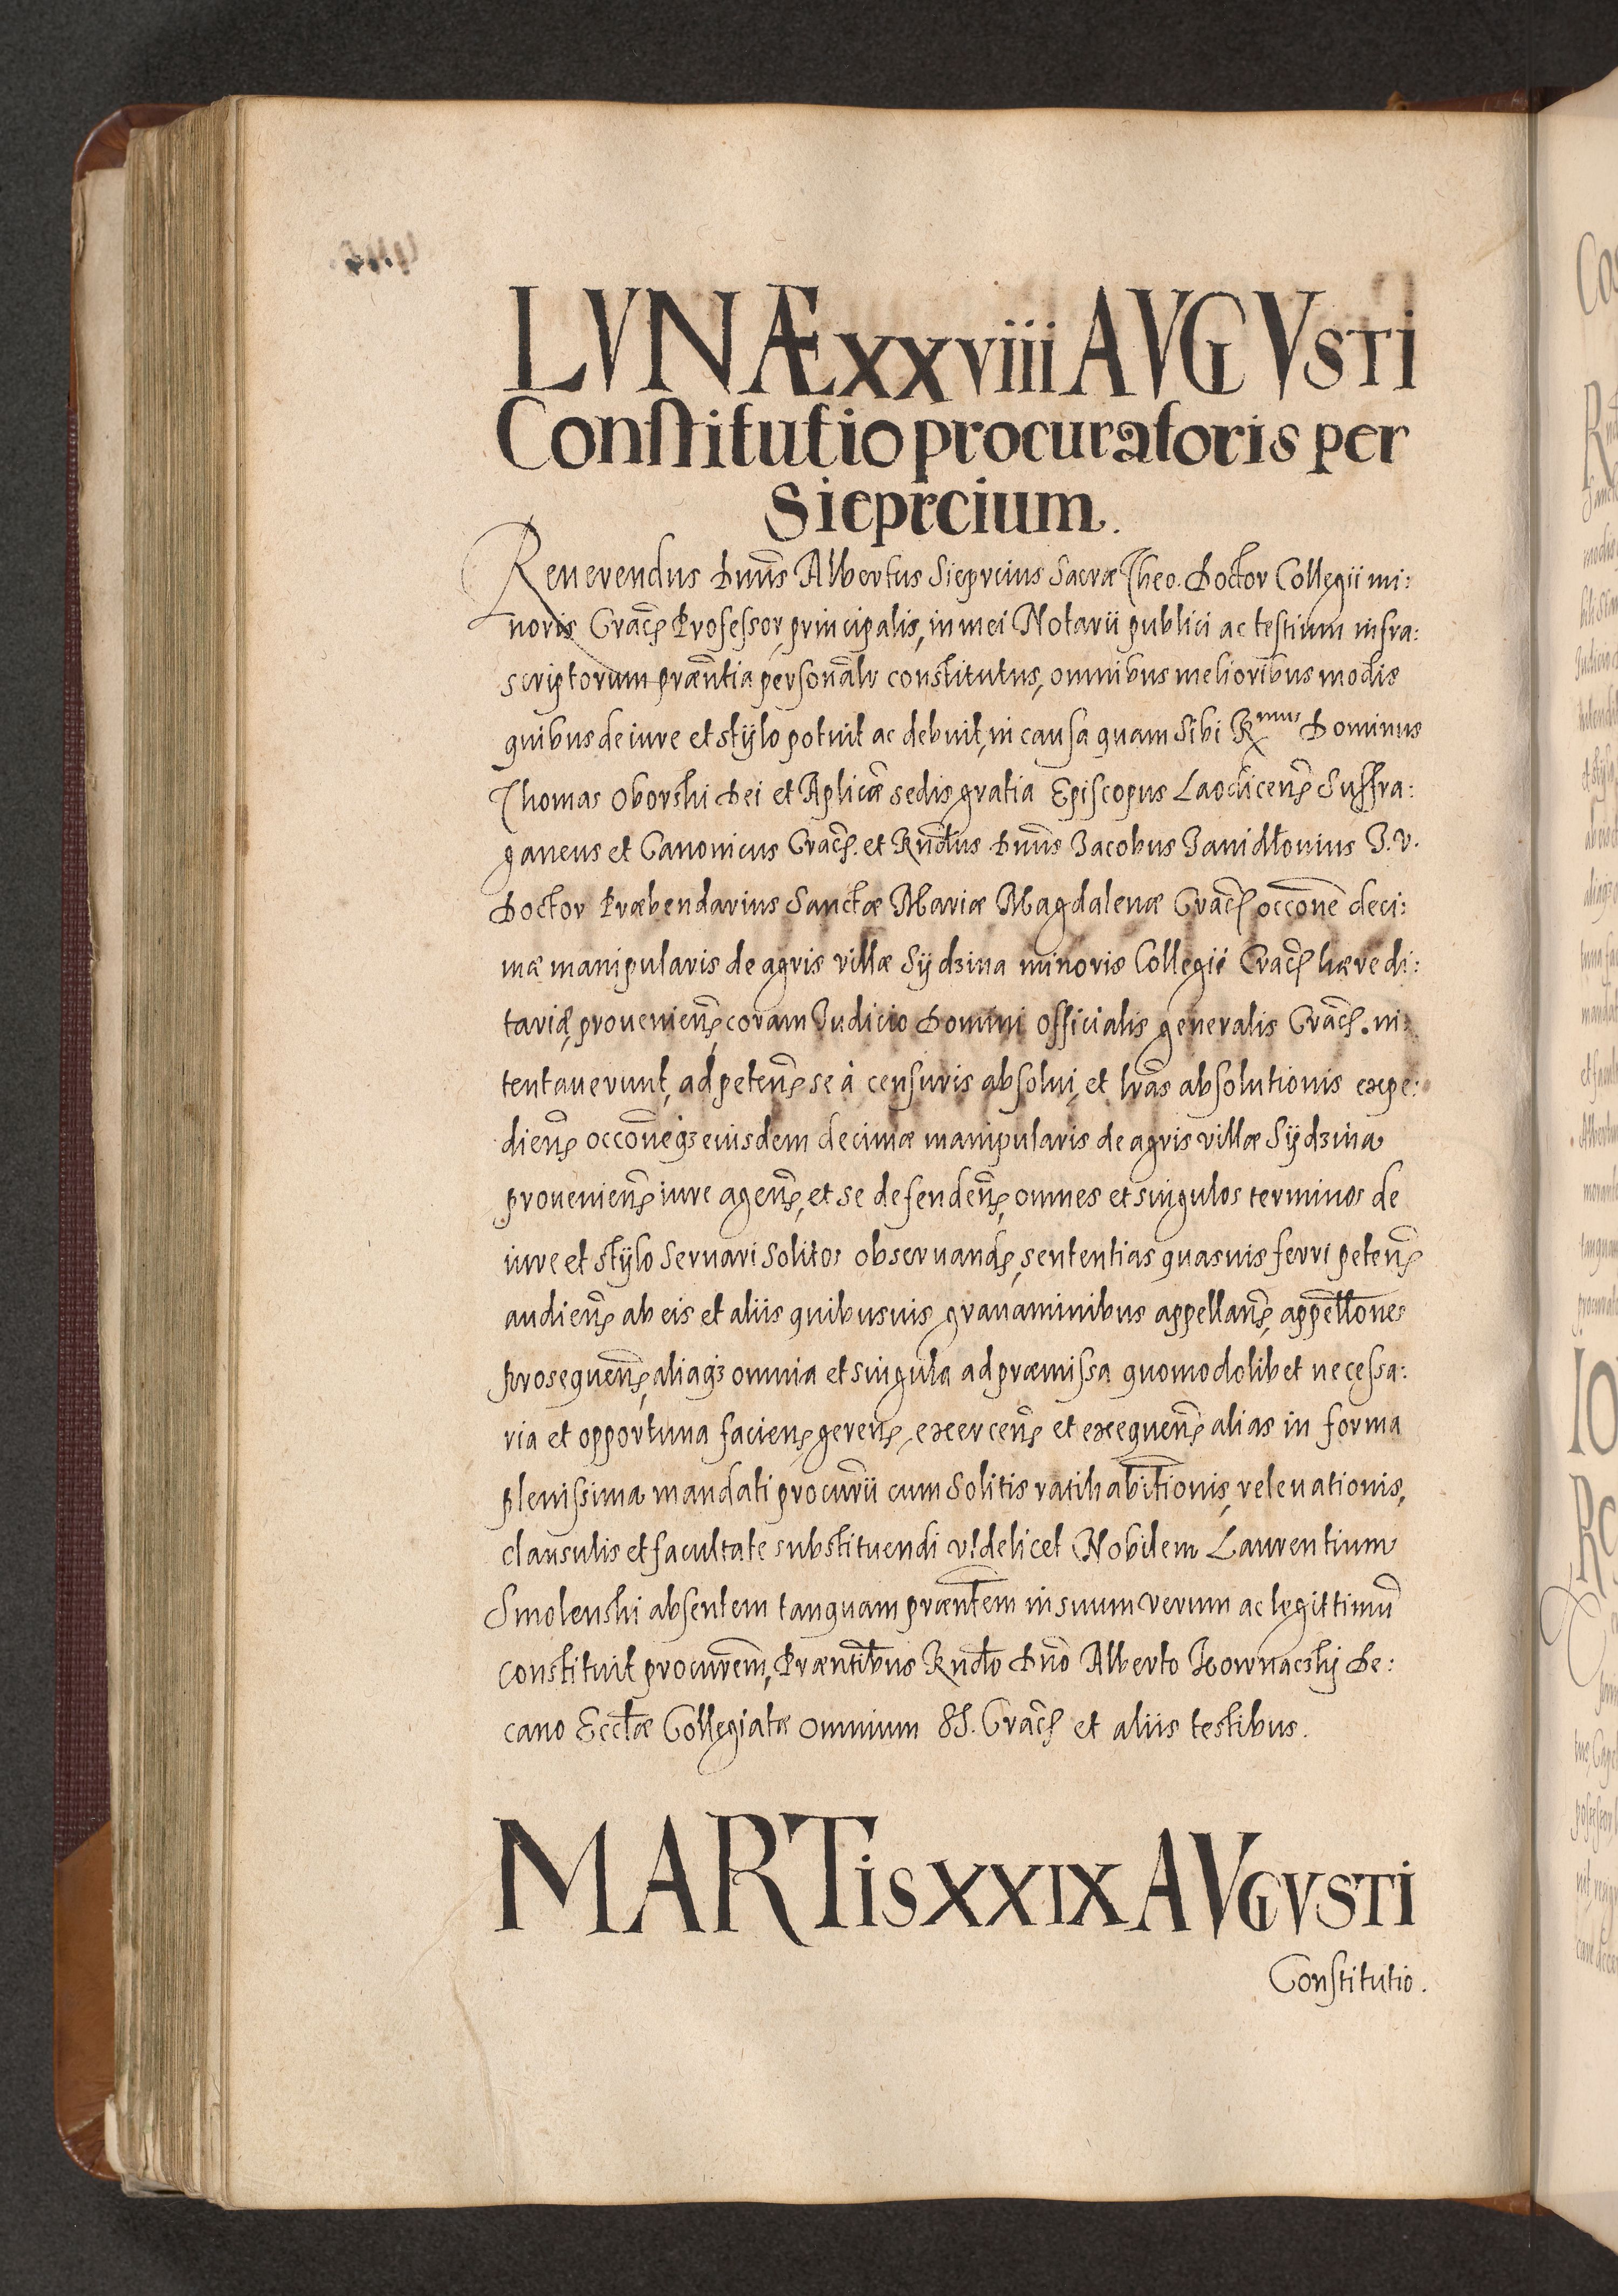 LVNÆ xxviii AVGVSTi
Constitutio procuratoris per
Sieprcium.
Reuerendus Dnus Albertus Sieprcius Sacræ Theo. Doctor Collegii mi:
noris Crac̃ Professor, principalis, in mei Notarii publici ac testium infra:
scriptorum præñtia personalr̃ constitutus, omnibus melioribus modis
quibus de iure et stylo potuit ac debuit, in causa quam Sibi Rmus Dominus
Thomas Oborski Dei et Aplicæ sedis gratia Episcopus Laodiceñ Suffra:
ganeus et Canonicus Crac̃. et Rndus Dnus Jacobus Janidłouius J. V.
Doctor Præbendarius Sanctæ Mariæ Magdalenæ Crac̃ occõne deci:
mæ manipularis de agris villæ Sydzina minoris Collegii Crac̃ hæredi:
tariæ, proueniẽñ coram Judicio Domini Officialis generalis Crac̃. in:
tentauerunt, ad peteñ se à censuris absolui, et lr̃as absolutionis expe:
dieñ occõneq3 eiusdem decimæ manipularis de agris villæ Sydzina
prouenieñ iure ageñ, et se defendeñ, omnes et singulos terminos de
iure et stylo Seruari Solitos obseruand, sententias quasuis ferri peteñ
audieñ ab eis et aliis quibusuis grauaminibus appellañ, appellõnes
prosequeñ, aliaq3 omnia et singula ad præmissa quomodolibet necessa:
ria et opportuna facieñ gereñ, exerceñ et exequeñ alias in forma
plenissima mandati procurii cum Solitis ratihabitionis, releuationis,
clausulis et facultate substituendi videlicet Nobilem Laurentium
Smolenski absentem tanquam præñtem in suum verum ac legittimũ
constituit procurẽm, Præñtibus Rndo Dño Alberto Kownacskj De:
cano Eccłæ Collegiatæ Omnium SS. Crac̃ et aliis testibus.
MARTis XXIX AVGVSTi
Constitutio.